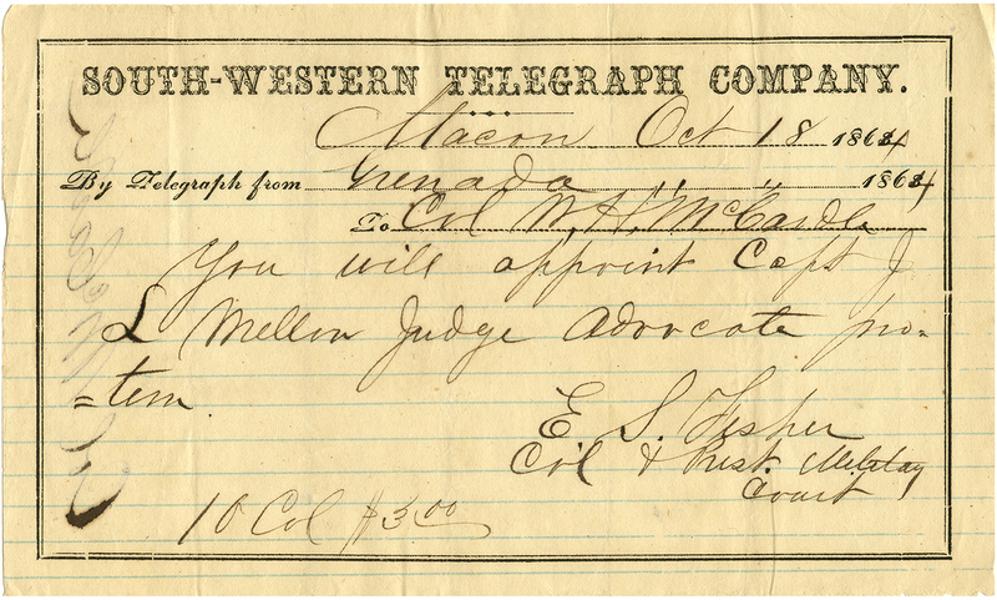 SOUTH-WESTERN TELEGRAPH COMPANY.
Macon Oct 18 1864
By Telegraph from Grenada " " 1864
To Col W. H. McCardle
You will appoint Capt J
L Mellon Judge Advocate pro=
=tem.
E. S. Fisher
Col & Prest. Military
Court
10 Col $3.00